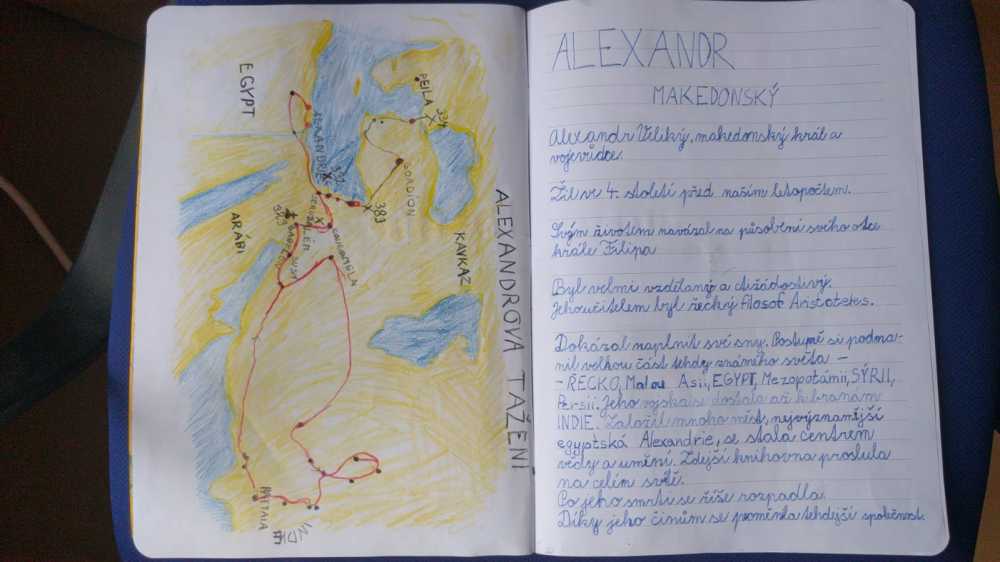 ALEXANDROVA TAŽENÍ
PELLA
334
GORDION
KAVKAZ
383
332
EGYPT
ALEXANDRIE
JERUZALÉM
GAUGAMELA
BABYLON
SUSY
323
ARÁBI
PATTALA
INDIE
ALEXANDR
MAKEDONSKÝ
Alexandr Veliký, makedonský král a
vojevůdce.
Žil ve 4. století před naším letopočtem.
Svým životem navázal na působení svého otce
krále Filipa
Byl velmi vzdělaný a ctižádostivý.
Jeho učitelem byl řecký filosof Aristoteles.
Dokázal naplnit své sny. Postupně si podma-
nil velkou část tehdy známého světa -
- ŘECKO, Malou Asii, EGYPT, Mezopotámii, SÝRII,
Persii. Jeho vojska se dostala až k branám
INDIE. Založil mnoho měst, nejvýznamější
egyptská Alexandrie, se stala centrem
vědy a umění. Zdejší knihovna proslula
na celém světě.
Po jeho smrti se říše rozpadla.
Díky jeho činům se proměnila tehdejší společnost.